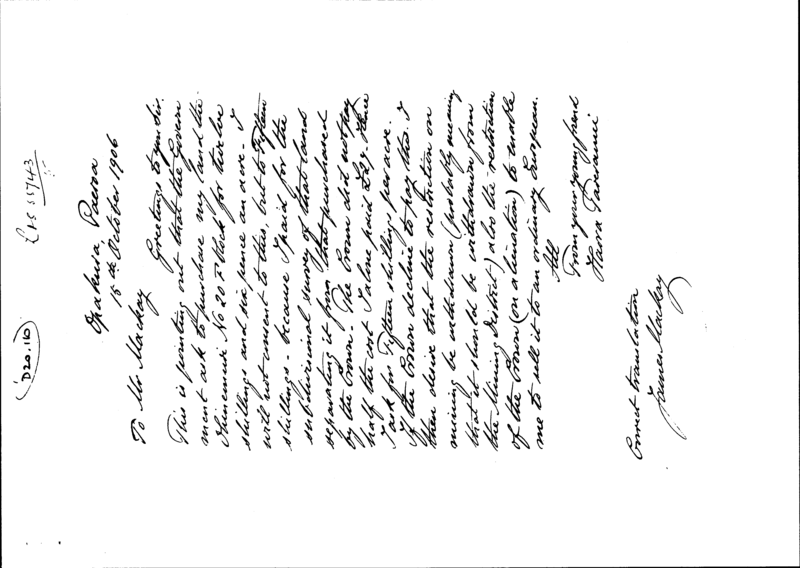 LS 55743
D20.10
Opakura, Paeroa
15th October 1906
To Mr Mackay
Greetings to you Sir.
This is pointing out that the Govern
ment ask to purchase my land the
No 20 F Block for twelve
shillings and six pence an acre - I
will not consent to this, but to Fifteen
shillings - because I paid for the
subdivisional survey of that land
separating it from that purchased
by the Crown. The Crown did not pay
half the cost I alone paid £29. There
I ask for Fifteen shillings per acre.
If the Crown decline to pay this. I
then desire that the restriction on
mining be withdrawn (probably meaning
that it should be withdrawn from
the Mining District) also the restriction
of the Crown (on alienation) to enable
me to sell it to an ordinary European.
All
From your young friend
Haira
Correct translation
James Mackay